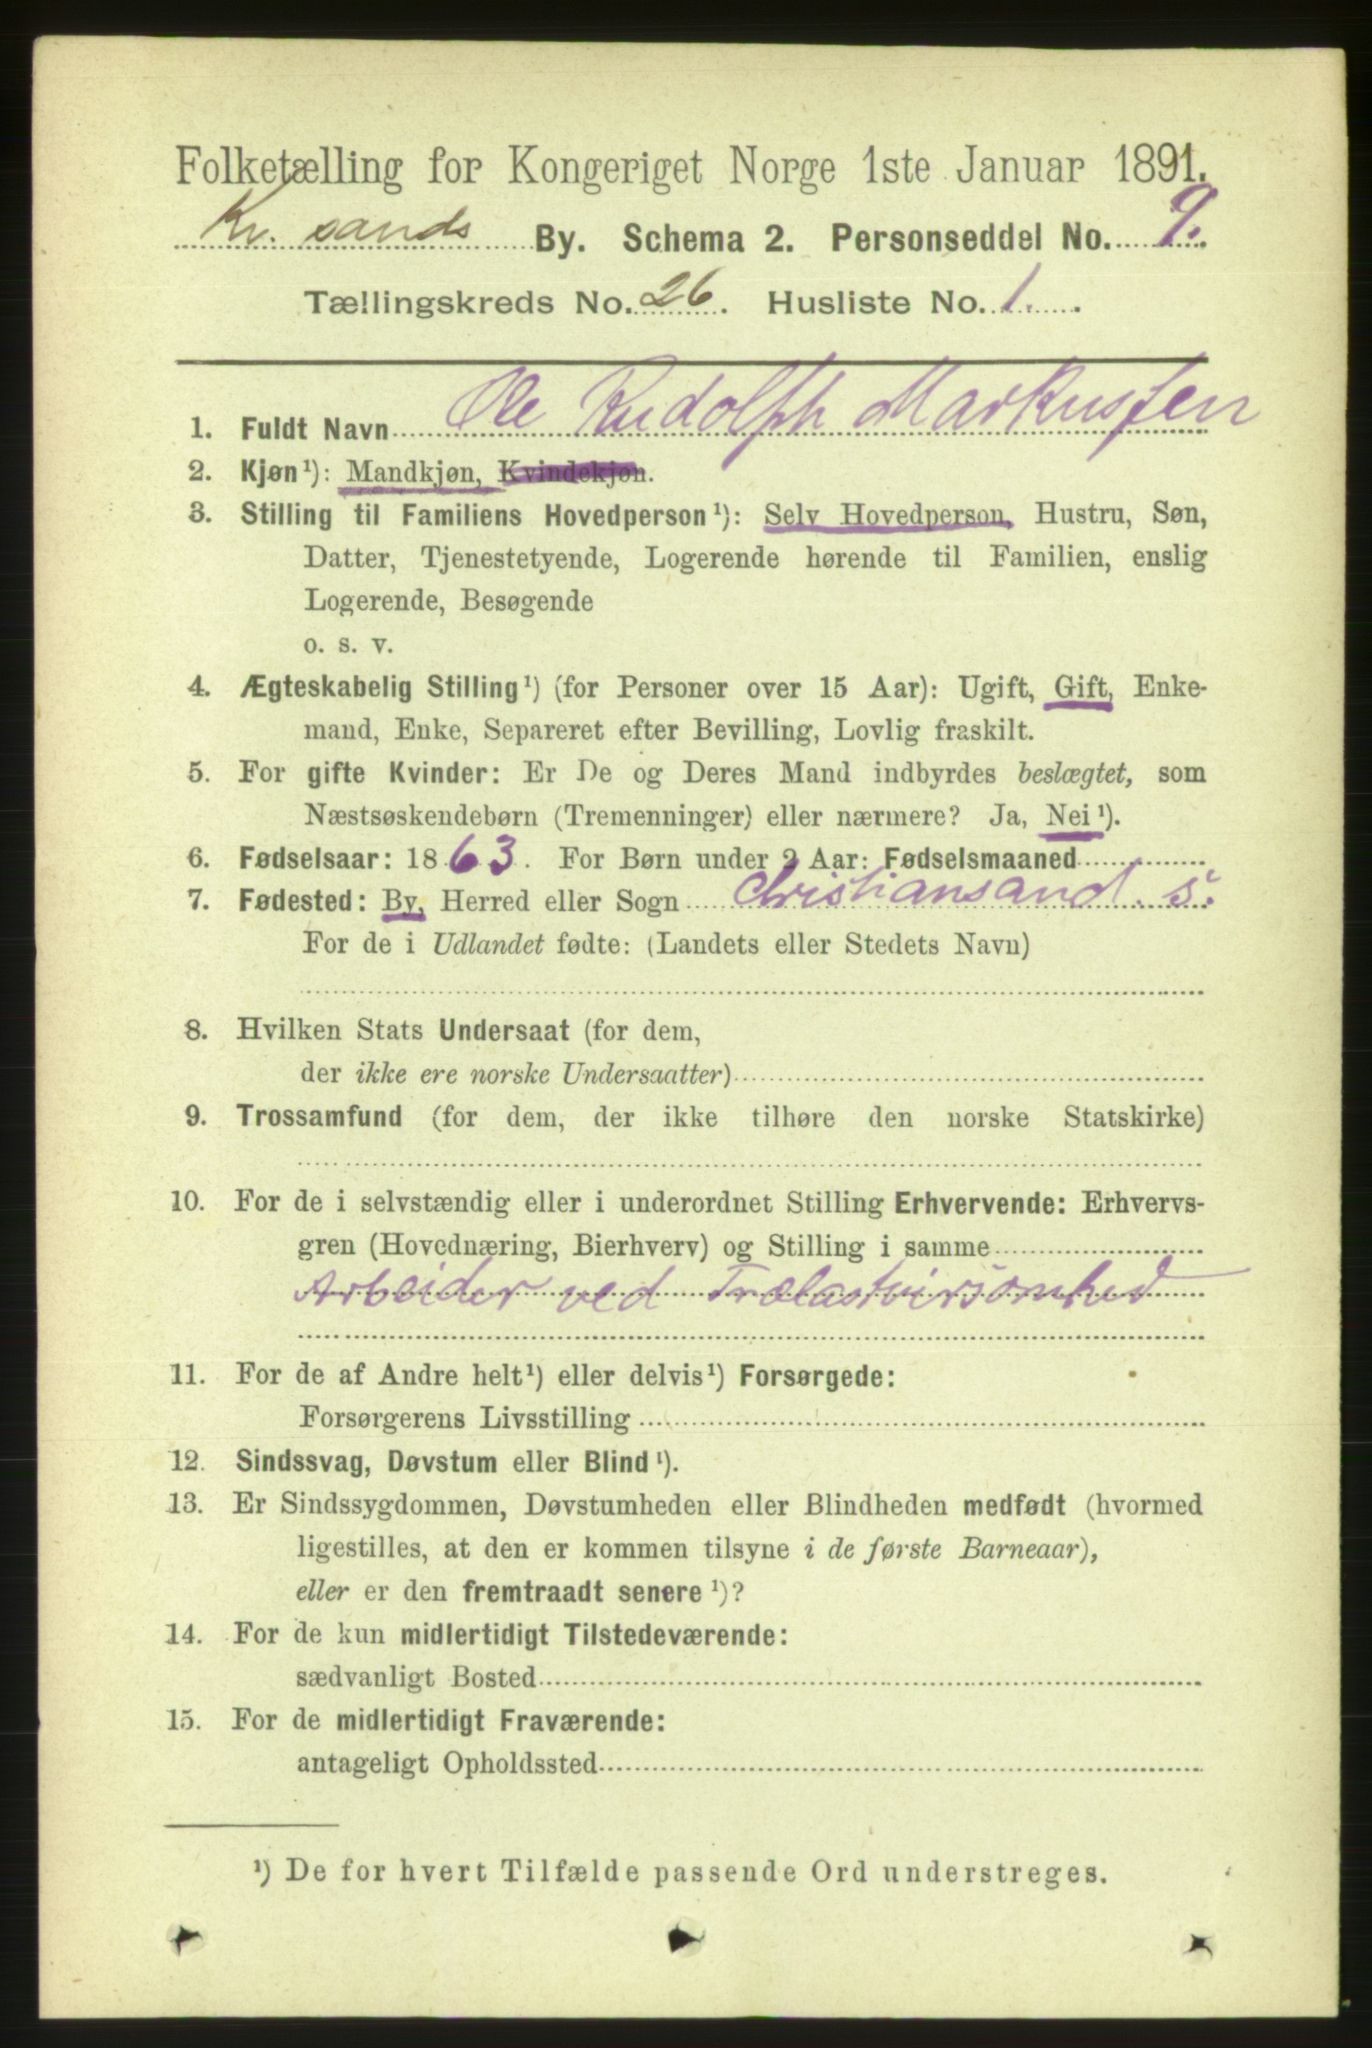 Folketælling for Kongeriget Norge 1ste Januar 1891.
Kr. sands By. Schema 2. Personseddel No. 9.
Tællingskreds No. 26. Husliste No. 1.
1. Fuldt Navn Ole Rudolph Markussen
2. Kjøn¹): Mandkjøn, Kvindekjøn.
3. Stilling til Familiens Hovedperson¹): Selv Hovedperson, Hustru, Søn,
Datter, Tjenestetyende, Logerende hørende til Familien, enslig
Logerende, Besøgende
o. s. v.
4. Ægteskabelig Stilling¹) (for Personer over 15 Aar): Ugift, Gift, Enke-
mand, Enke, Separeret efter Bevilling, Lovlig fraskilt.
5. For gifte Kvinder: Er De og Deres Mand indbyrdes beslægtet, som
Næstsøskendebørn (Tremenninger) eller nærmere? Ja, Nei¹).
6. Fødselsaar: 1863. For Børn under 2 Aar: Fødselsmaaned
7. Fødested: By, Herred eller Sogn Christiansand. S.
For de i Udlandet fødte: (Landets eller Stedets Navn)
8. Hvilken Stats Undersaat (for dem,
der ikke ere norske Undersaatter)
9. Trossamfund (for dem, der ikke tilhøre den norske Statskirke)
10. For de i selvstændig eller i underordnet Stilling Erhvervende: Erhvervs-
gren (Hovednæring, Bierhverv) og Stilling i samme
Arbeider ved Trælastvirsomhed
11. For de af Andre helt¹) eller delvis¹) Forsørgede:
Forsørgerens Livsstilling
12. Sindssvag, Døvstum eller Blind¹).
13. Er Sindssygdommen, Døvstumheden eller Blindheden medfødt (hvormed
ligestilles, at den er kommen tilsyne i de første Barneaar),
eller er den fremtraadt senere¹)?
14. For de kun midlertidigt Tilstedeværende:
sædvanligt Bosted
15. For de midlertidigt Fraværende:
antageligt Opholdssted
¹) De for hvert Tilfælde passende Ord understreges.